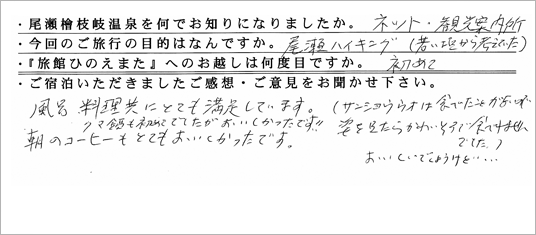 ・尾瀬檜枝岐温泉を何でお知りになりましたか。 ネット・観光案内所
・今回のご旅行の目的はなんですか。 尾瀬ハイキング(若い頃から考えていた)
・『旅館ひのえまた』へのお越しは何度目ですか。 初めて
・ご宿泊いただきましたご感想・ご意見をお聞かせ下さい。
風呂 料理共にとても満足しています。
クマ鍋も初めてでしたがおいしかったです!!
朝のコーヒーもとてもおいしかったです。
(サンショウウオは食べた
姿を見たらかわいそうで食べれません
でした。)
おいしいでしょうけど・・・・